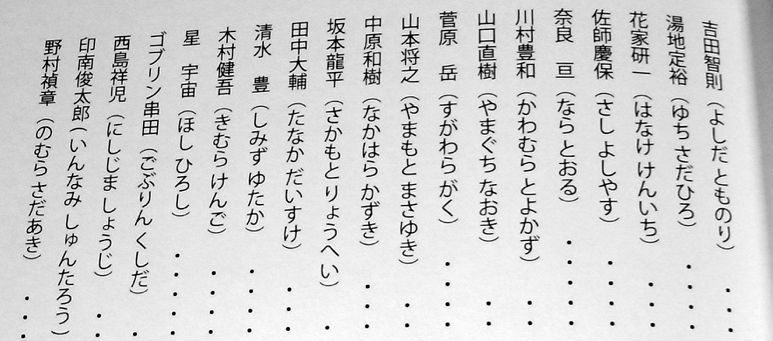 吉田智則（よしだ とものり）・・・
湯地定裕（ゆち さだひろ）・・・・
花家研一（はなけ けんいち）・・・・
佐師慶保（さし よしやす）・・・・・
奈良　亘（なら とおる）・・・・・
川村豊和（かわむら とよかず）・・・
山口直樹（やまぐち なおき）・・・
菅原　岳（すがわら がく）・・・・
山本将之（やまもと まさゆき）・・・
中原和樹（なかはら かずき）・・・
坂本龍平（さかもと りょうへい）・
田中大輔（たなか だいすけ）・・・
清水　豊（しみず ゆたか）・・・・
木村健吾（きむら けんご）・・・・
星　宇宙（ほし ひろし）・・・・・
ゴブリン串田（ごぶりん くしだ）・・
西島祥児（にしじま しょうじ）・・・
印南俊太郎（いんなみ しゅんたろう）
野村禎章（のむら さだあき）・・・